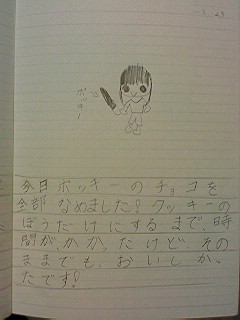 ポッキー
今日ポッキーのチョコを
全部なめました!クッキーの
ぼうだけにするまで、時
間が、かかったけど、その
ままでも、おいしかっ
たです!